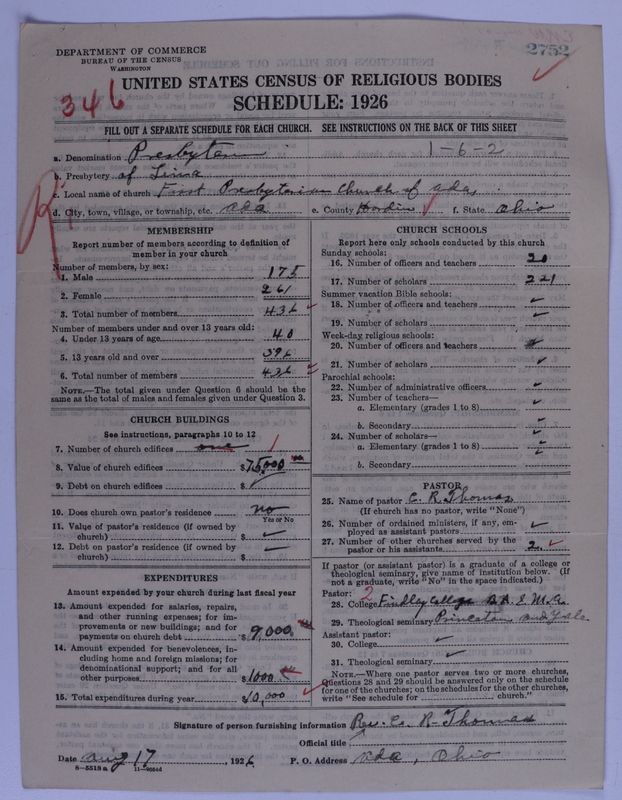 DEPARTMENT OF COMMERCE
BUREAU OF THE CENSUS
WASHINGTON
2752
UNITED STATES CENSUS OF RELIGIOUS BODIES
346
SCHEDULE: 1926
FILL OUT A SEPARATE SCHEDULE FOR EACH CHURCH. SEE INSTRUCTIONS ON THE BACK OF THIS SHEET
a. Denomination Presbyterian 1-6-2
b. Presbytery of Lima
c. Local name of church First Presbyterian Church of Ada,
d. City, town, village, or township, etc. Ada e. County Hardin f. State Ohio
MEMBERSHIP
Report number of members according to definition of
member in your church
Number of members, by sex:
1. Male 175
2. Female 261
3. Total number of members 436
Number of members under and over 13 years old:
4. Under 13 years of age 40
5. 13 years old and over 396
6. Total number of members 436
NOTE.—The total given under Question 6 should be
same as the total of males and females given under Question 3.
CHURCH BUILDINGS
See instructions, paragraphs 10 to 12
7. Number of church edifices one 1
8. Value of church edifices $75,000
9. Debt on church edifices $
10. Does church own pastor's residence no
Yes or No
11. Value of pastor's residence (if owned by
church) $
12. Debt on pastor's residence (if owned by
church) $
EXPENDITURES
Amount expended by your church during last fiscal year
13. Amount expended for salaries, repairs,
and other running expenses; for im-
provements or new buildings; and for
payments on church debt $9,000
14. Amount expended for benevolences, in-
cluding home and foreign missions; for
denominational support; and for all
other purposes $1000
15. Total expenditures during year $10,000
CHURCH SCHOOLS
Report here only schools conducted by this church
Sunday schools:
16. Number of officers and teachers 20
17. Number of scholars 221
Summer vacation Bible schools:
18. Number of officers and teachers
19. Number of scholars
Week-day religious schools:
20. Number of officers and teachers
21. Number of scholars
Parochial schools:
22. Number of administrative officers
23. Number of teachers—
a. Elementary (grades 1 to 8)
b. Secondary
24. Number of scholars—
a. Elementary (grades 1 to 8)
b. Secondary
PASTOR
25. Name of pastor C. R. Thomas
(If church has no pastor, write "None")
26. Number of ordained ministers, if any, em-
ployed as assistant pastors
27. Number of other churches served by the
pastor or his assistants 2
If pastor (or assistant pastor) is a graduate of a college or
theological seminary, give name of institution below. (If
not a graduate, write "No" in the space indicated.)
Pastor: 2
28. College Findlay College B.A. & M.A.
29. Theological seminary Princeton and Yale
Assistant pastor:
30. College
31. Theological seminary
NOTE.—Where one pastor serves two or more churches,
Questions 28 and 29 should be answered only on the schedule
for one of the churches; on the schedules for the other churches,
write "See schedule for church."
Signature of person furnishing information Rev. C. R. Thomas
Official title
Date Aug 17, 1926 P. O. Address Ada, Ohio
8—5518a